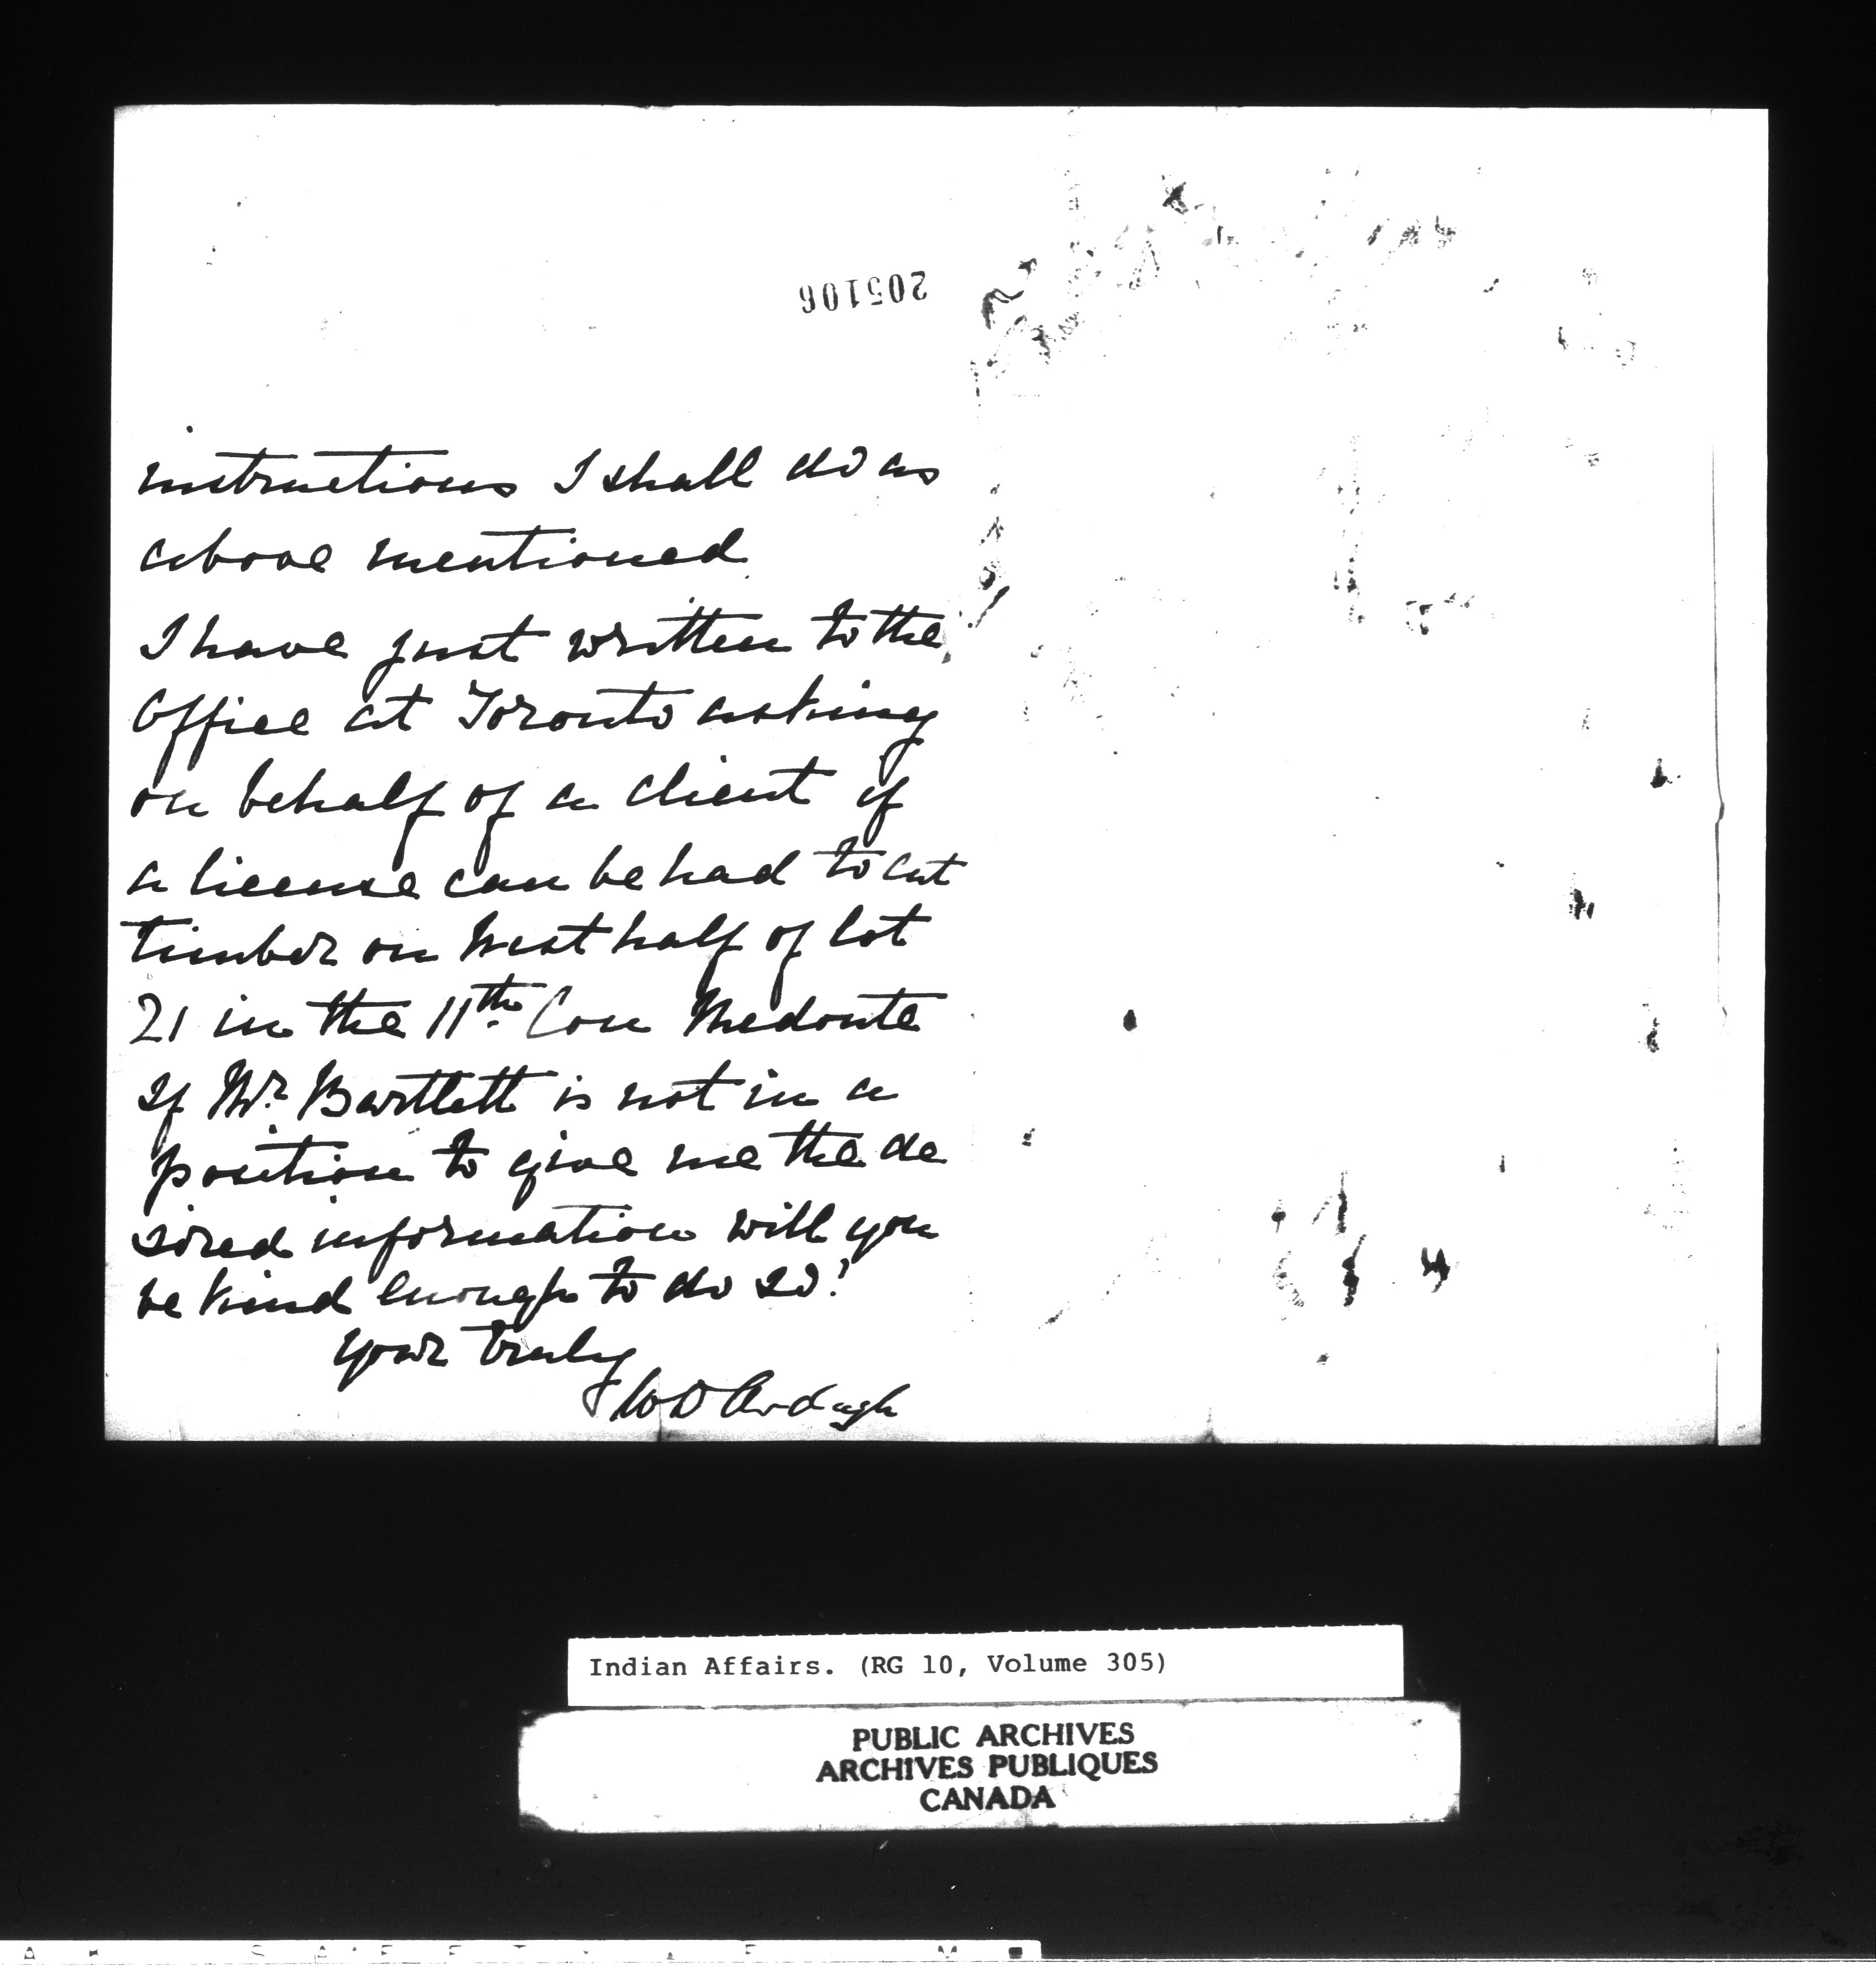 205106
instructions I shall do as
above mentioned
I have just written to the
Office at Toronto asking
on behalf of a client if
a license can be had to cut
timber on West half of lot
21 in the 11th Con Medonte
If Mr Bartlett is not in a
position to give me the de
sired information will you
be kind enough to do so?
Yours truly
W D Ardagh
Indian Affairs. (RG 10, Volume 305)
PUBLIC ARCHIVES
ARCHIVES PUBLIQUES
CANADA